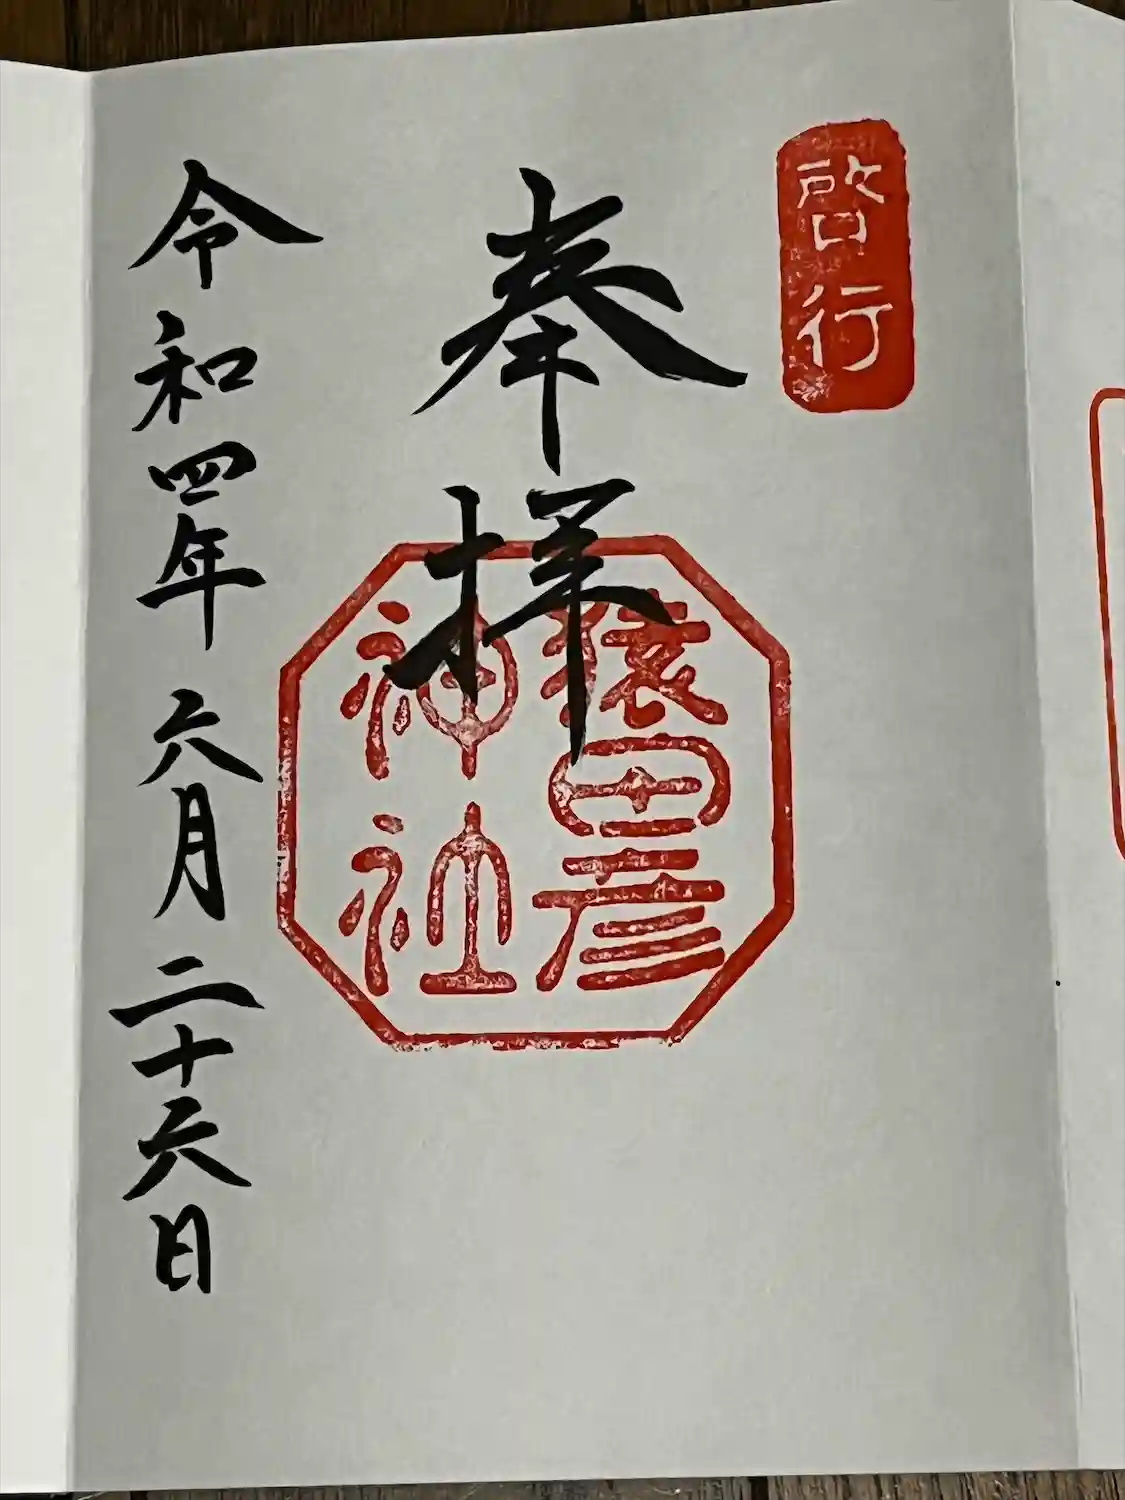 啓行
奉拝
猿田彦
神社
令和四年 六月 二十六日